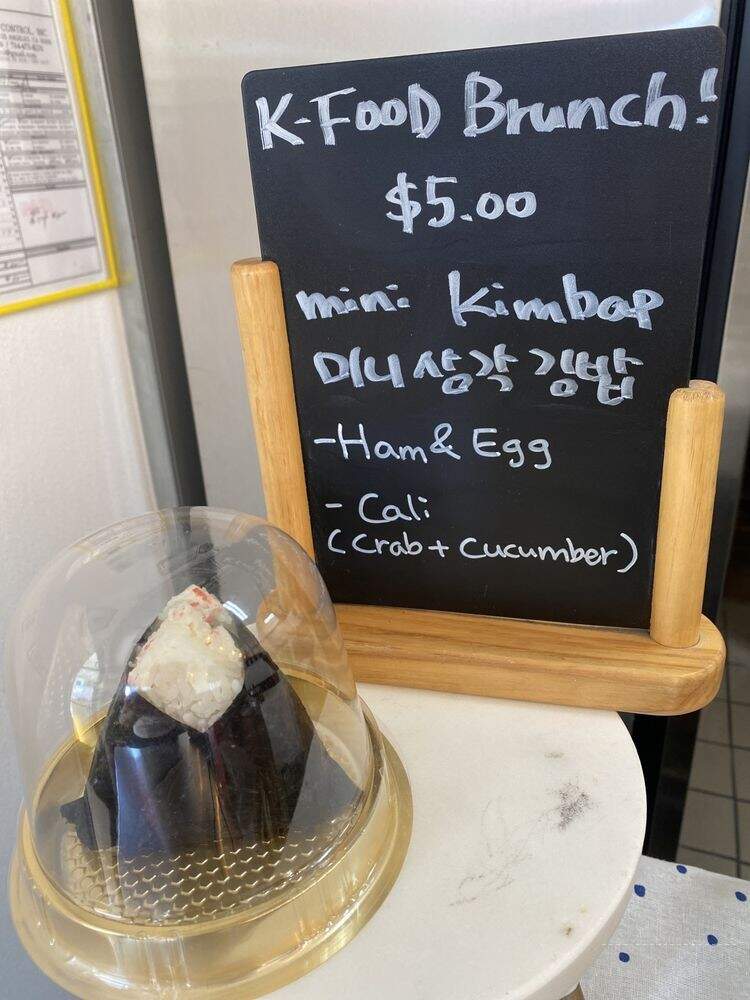 CONTROL, INC.
K-FooD Brunch!
$5.00
mini Kimbap
미니 삼각 김밥
-Ham & Egg
- Cali
(Crab + Cucumber)